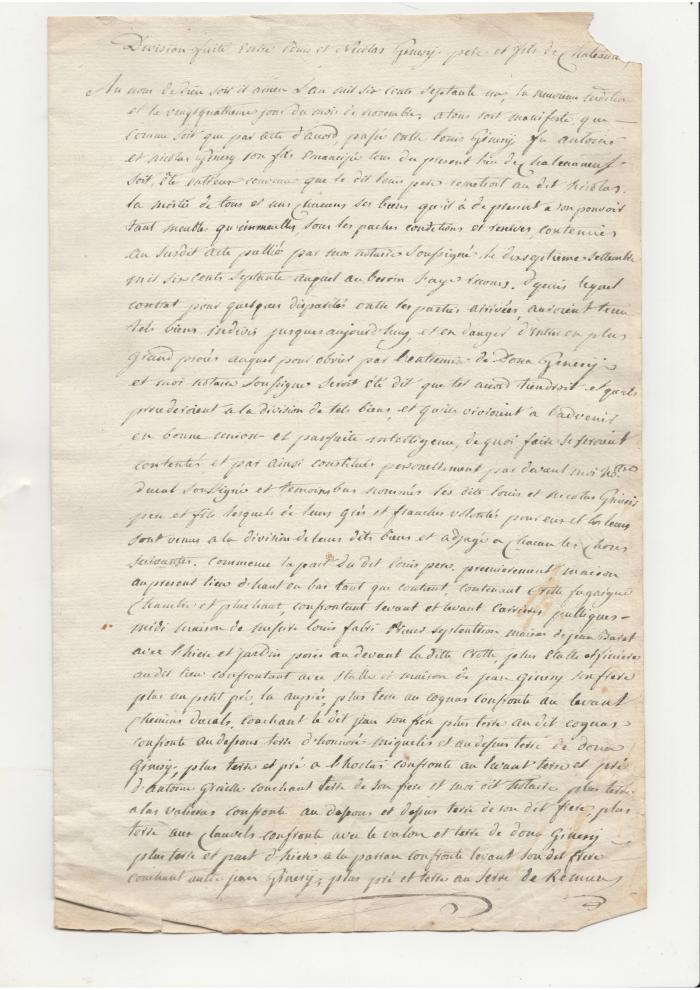 Division faite entre Louis et Nicolas Ginesy pere et fils de Chateau
Au nom de dieu soit il ainsin L'an mil six cents septante un, la neuvieme indiction
et le vingt quatrieme jour du mois de novembre, a tous soit manifeste que
comme soit que par acte d'acord passé entre louis Ginesy fu antoine
et nicolas Ginesy son fils emancipé tous du present lieu de Chateauneuf
soit, été entreux convenu que le dit louis pere remetroit au dit nicolas
la moitié de tous et uns chacuns ses biens qu'il a de present a son pouvoir
tant meubles qu'immeubles, sous les paches conditions et reserves, contenues
au susdit acte publié par moi notaire soussigné le dixseptieme settembre
mil six cents septante auquel au besoin s'aye recours. Depuis lequel
contrat pour quelques disparités entre les parties arrivées, auroient tenu
tels biens indivis jusques aujourd'huy, et en danger d'entrer en plus
grand procés auquel pour obvier par l'entremise de Dona Ginesy
et moi notaire soussigné seroit été dit que tel acord tiendroit et qu'ils
procederoient a la division de tels biens, et qu'ils vivroient a l'advenir
en bonne union et parfaite intelligence, de quoi faire se seroient
contentés et par ainsi constitués personellement par devant moi no.re
ducal soussigné et temoins bas nommés les dits louis et nicolas Ginesy
pere et fils lesquels de leurs grés et franches volontés pour eux et les leurs
sont venus a la division de leurs dits biens et adjugé a chacun les choses
suivantes. comme la part du dit louis pere, premierement maison
au present lieu d'haut en bas tant que contient, contenant Crotte fugaigne
Chambre et plus haut, confrontant levant et levant carrieres publiques
midi maison de messire louis fabri septentrion maison de jean
avec l'hiere et jardin posés au devant la ditte Crotte, plus étable et feniere
au dit lieu confrontant avec étable et maison de jean Ginesy son frere
plus un petit pré, la auprés, plus terre au cognas confronte au levant
chemins ducals, couchant le dit jean son frere plus terre au dit cognas
confronte au dessous terre d'honnoré miquelis et au dessus terre de dona
Ginesy, plus terre et pré a l'hostes confronte au levant terre et pré
d'antoine couchant terre de son frere et moi dit notaire plus terre
a las valieras confronte au dessous et dessus terre de son dit frere plus
terre aux Clauvels confronte avec le valon et terre de dona Ginesy
plus terre et part d'hiere a la parran confronte levant son dit frere
couchant autre jean Ginesy, plus pré et terre au Serre de